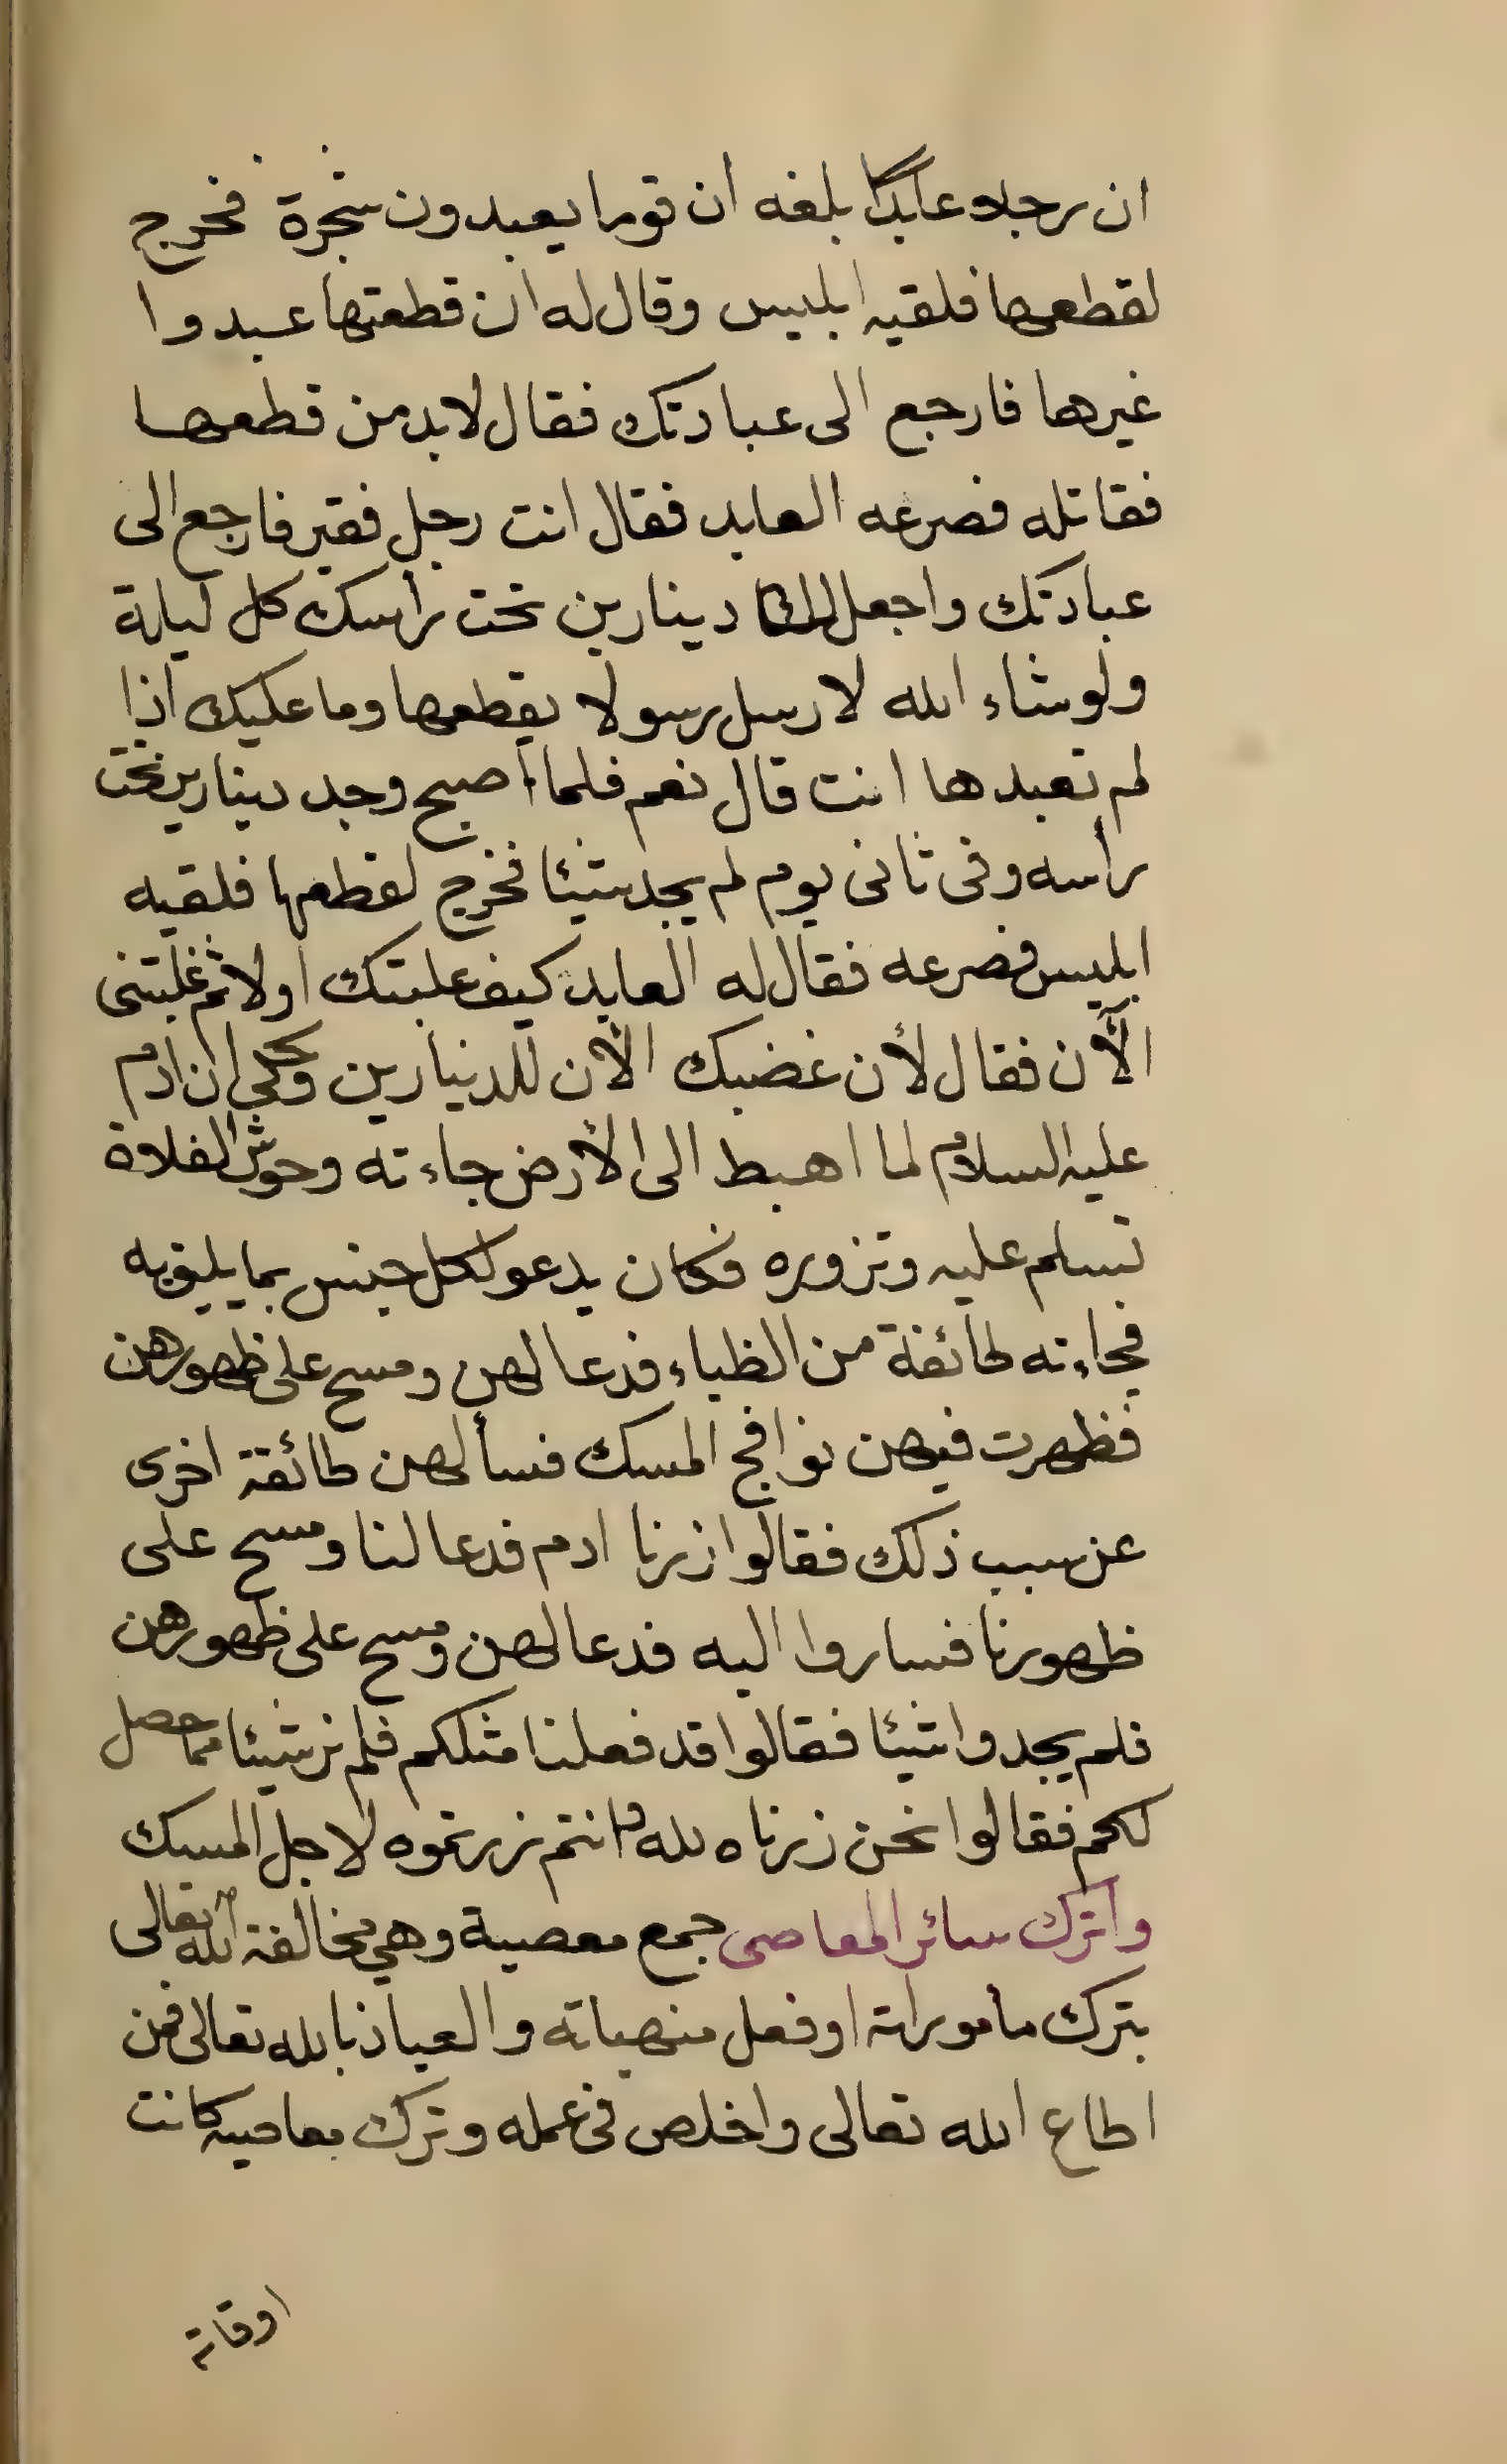 ان رجلا عابدًا بلغه ان قوما يعبدون شجرة فخرج
لقطعها فلقيه ابليس وقال له ان قطعتها عبدوا
غيرها فارجع الى عبادتك فقال لابد من قطعها
فقاتله فصرعه العابد فقال انت رجل فقير فارجع الى
عبادتك واجعل لك دينارين تحت راسك كل ليلة
ولو شاء الله لارسل رسولا يقطعها وما عليك اذا
لم تعبدها انت قال نعم فلما اصبح وجد دينارين تحت
رأسه وفى ثانى يوم لم يجد شيئا فخرج لقطعها فلقيه
ابليس فصرعه فقال له العابد كيف غلبتك اولا ثم غلبتنى
الآن فقال لأن غضبك الأن للدينارين وحكي ان ادم
عليه السلام لما اهبط الى الأرض جاءته وحوش الفلاة
تسلم عليه وتزوره فكان يدعو لكل جنس بما يليق به
فجاءته طائفة من الظباء فدعا لهن ومسح على ظهورهن
فظهرت فيهن نوافج المسك فسألهن طائفة اخرى
عن سبب ذلك فقالوا زرنا ادم فدعا لنا ومسح على
ظهورنا فساروا اليه فدعا لهن ومسح على ظهورهن
فلم يجدوا شيئا فقالوا قد فعلنا مثلكم فلم نر شيئا مما حصل
لكم فقالوا نحن زرناه لله وانتم زرتموه لاجل المسك
واترك سائر المعاصى جمع معصية وهي مخالفة الله تعالى
بترك مأموراته او فعل منهياته والعياذ بالله تعالى فمن
اطاع الله تعالى واخلص فى عمله وترك معاصيه كانت
اوقاته